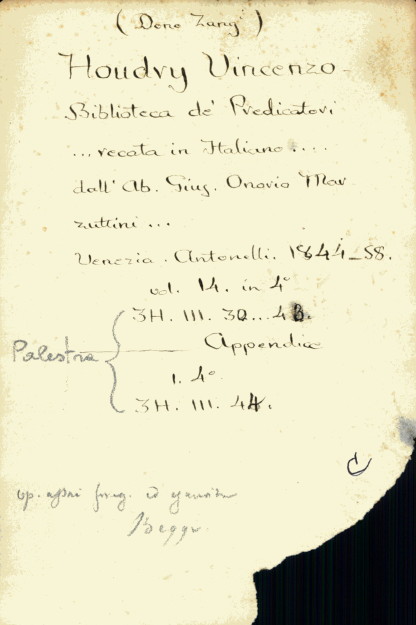 (Dono Zang)
Houdry Vincenzo -
Biblioteca de' Predicatori
...recata in Italiano....
dall' Ab. Gius. Onorio Mar
zuttini ...
Venezia. Antonelli. 1844-58.
vol. 14. in 4°
3H. III. 30...43.
Appendice
Palestra
1. 4°
3H. III. 44.
C
op.
Begge